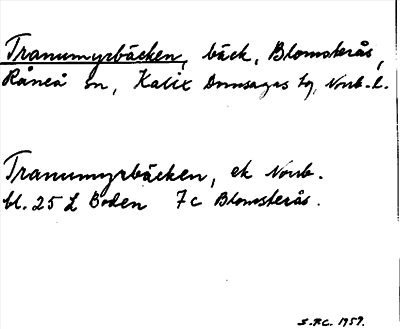 Tranumyrbäcken, bäck, Blomsterås,
Råneå sn, Kalix Domsagas tg, Norrb. l.
Tranumyrbäcken, ek Norrb.
bl. 25 L Boden 7c Blomsterås.
S.F.C. 1959.